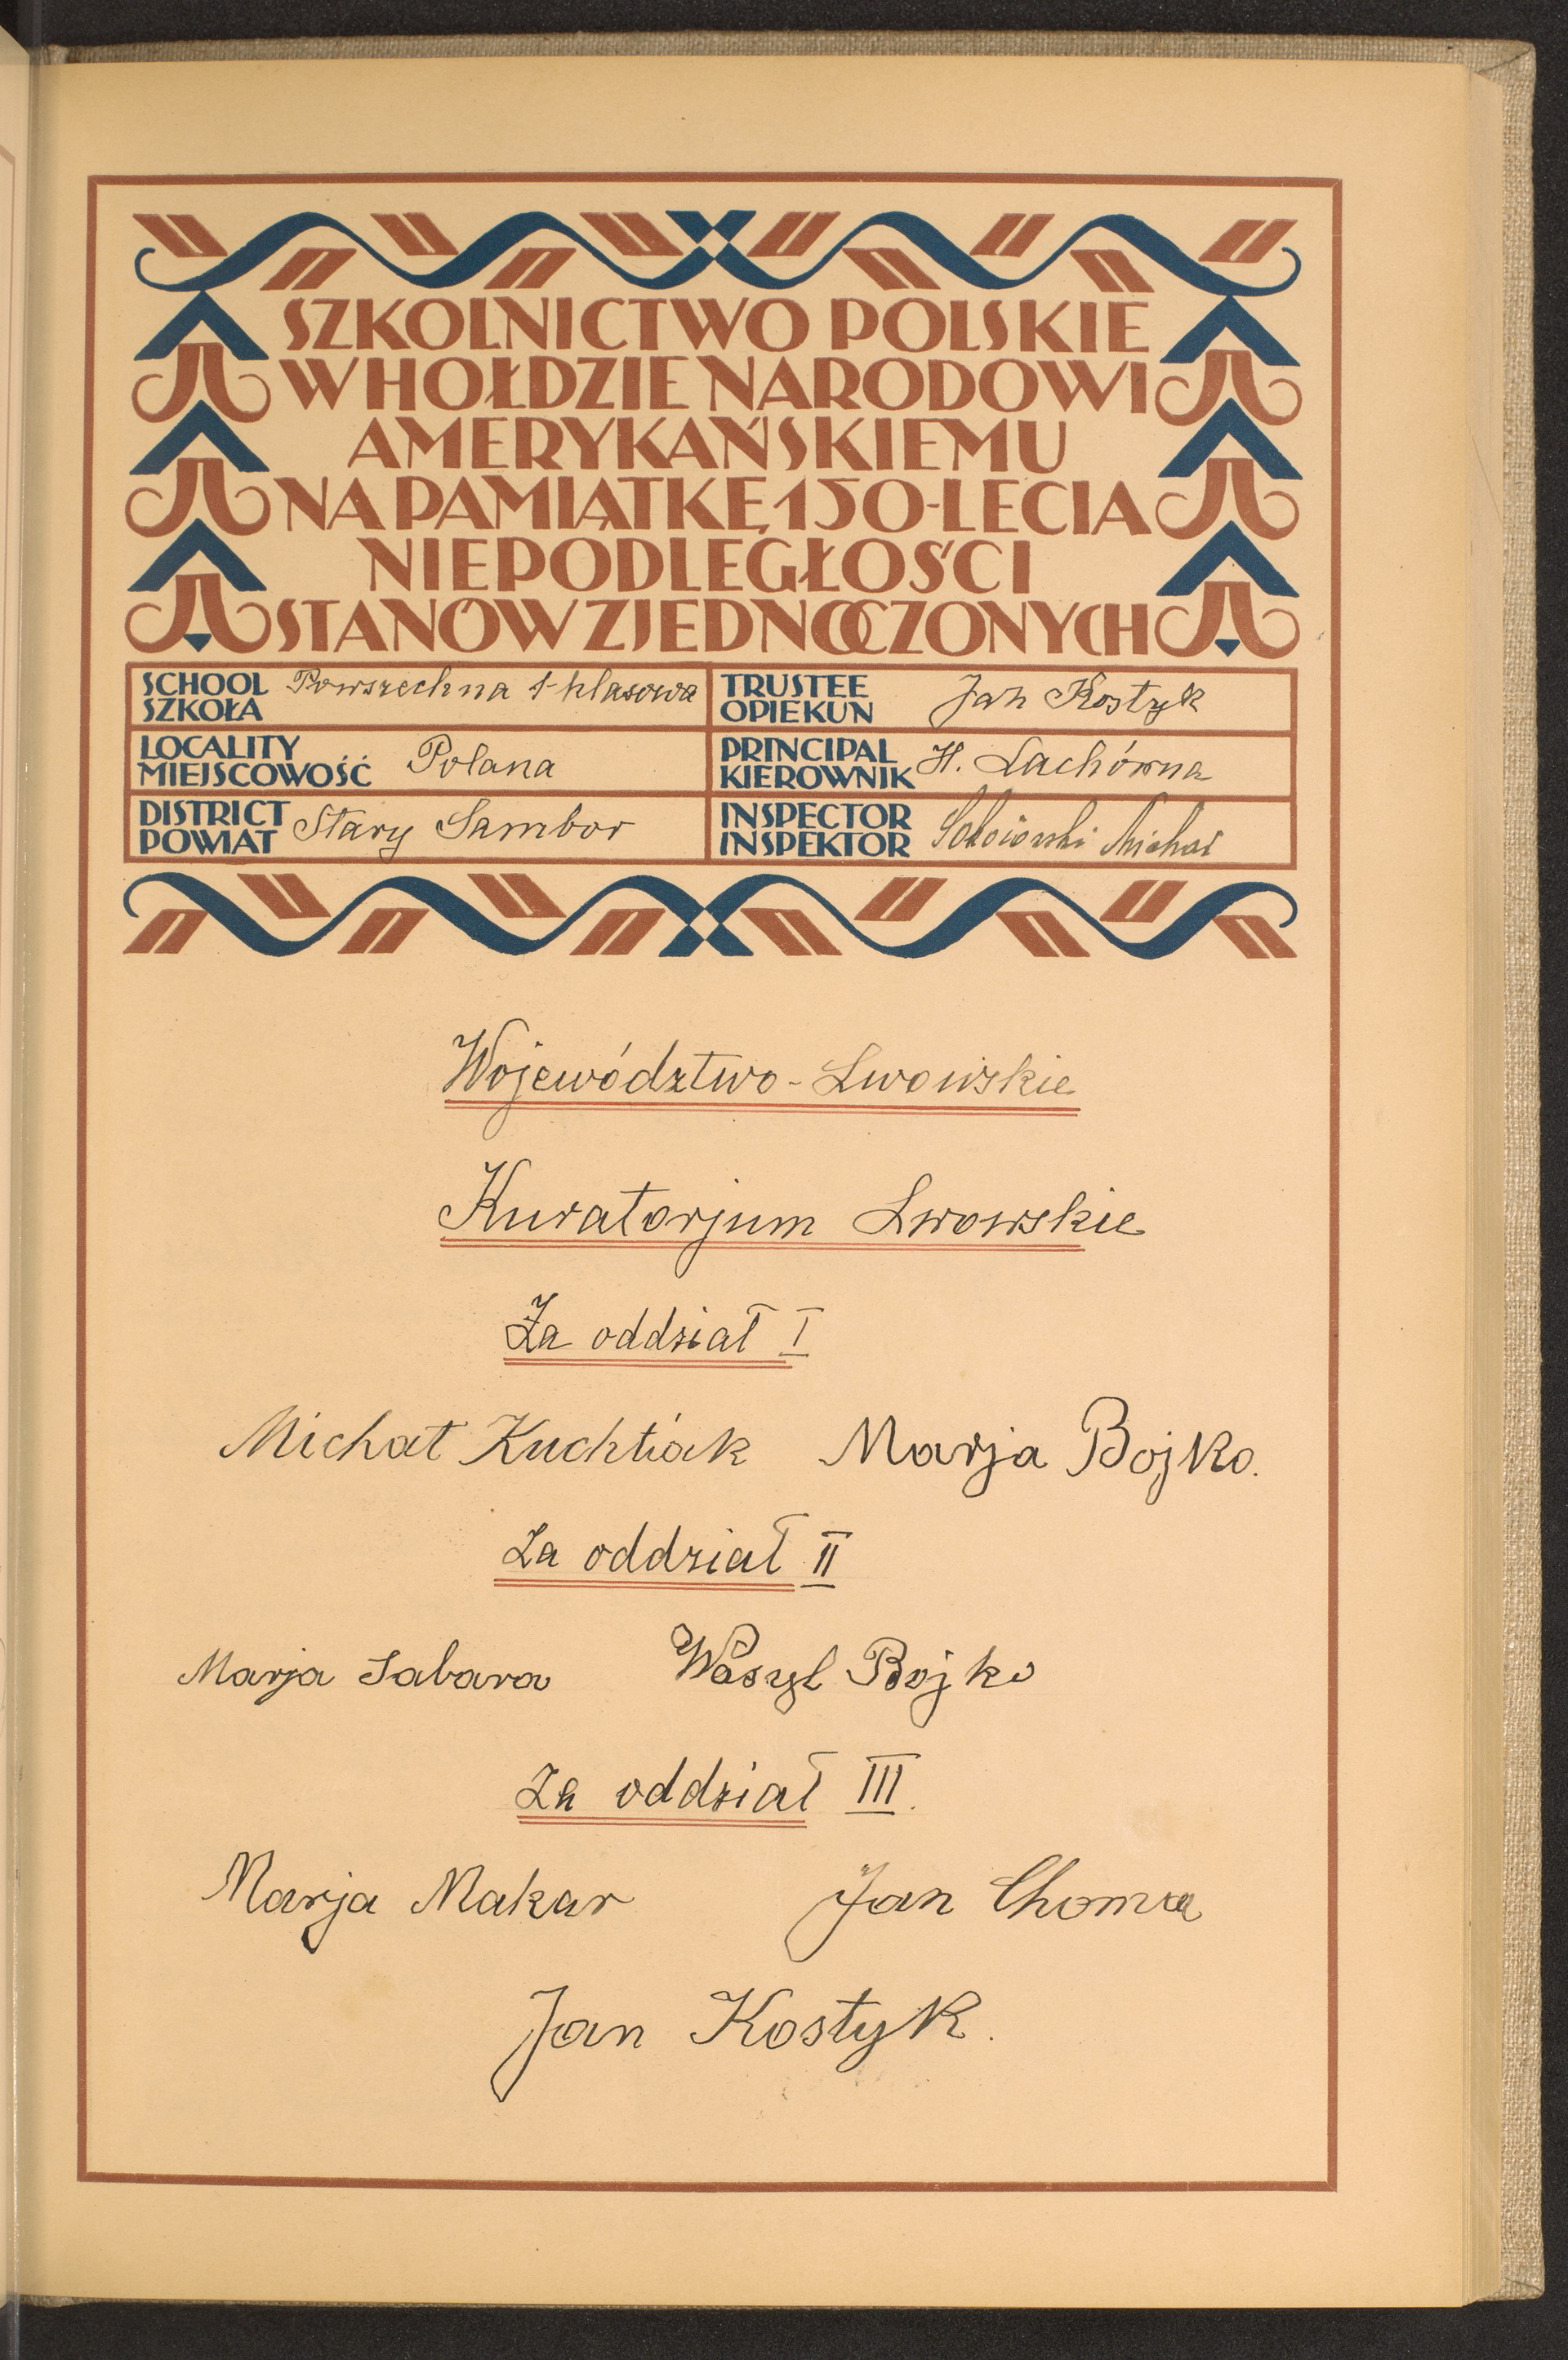 SZKOLNICTWO POLSKIE
W HOŁDZIE NARODOWI
AMERYKAŃSKIEMU
NA PAMIĄTKĘ 150-LECIA
NIEPODLEGŁOŚCI
STANÓW ZJEDNOCZONYCH
SCHOOL
SZKOŁA Powszechna 1-klasowa
TRUSTEE
OPIEKUN Jan Kostyk
LOCALITY
MIEJSCOWOŚĆ Polana
PRINCIPAL
KIEROWNIK H. Lachówna
DISTRICT
POWIAT Stary Sambor
INSPECTOR
INSPEKTOR Michał
Województwo - Lwowskie
Kuratorjum Lwowskie
Za oddział I
Michał Kuchtiak Marja Bojko.
Za oddział II
Marja Sabara Wasyl Bojko
Za oddział III.
Marja Makar Jan Choma
Jan Kostyk.